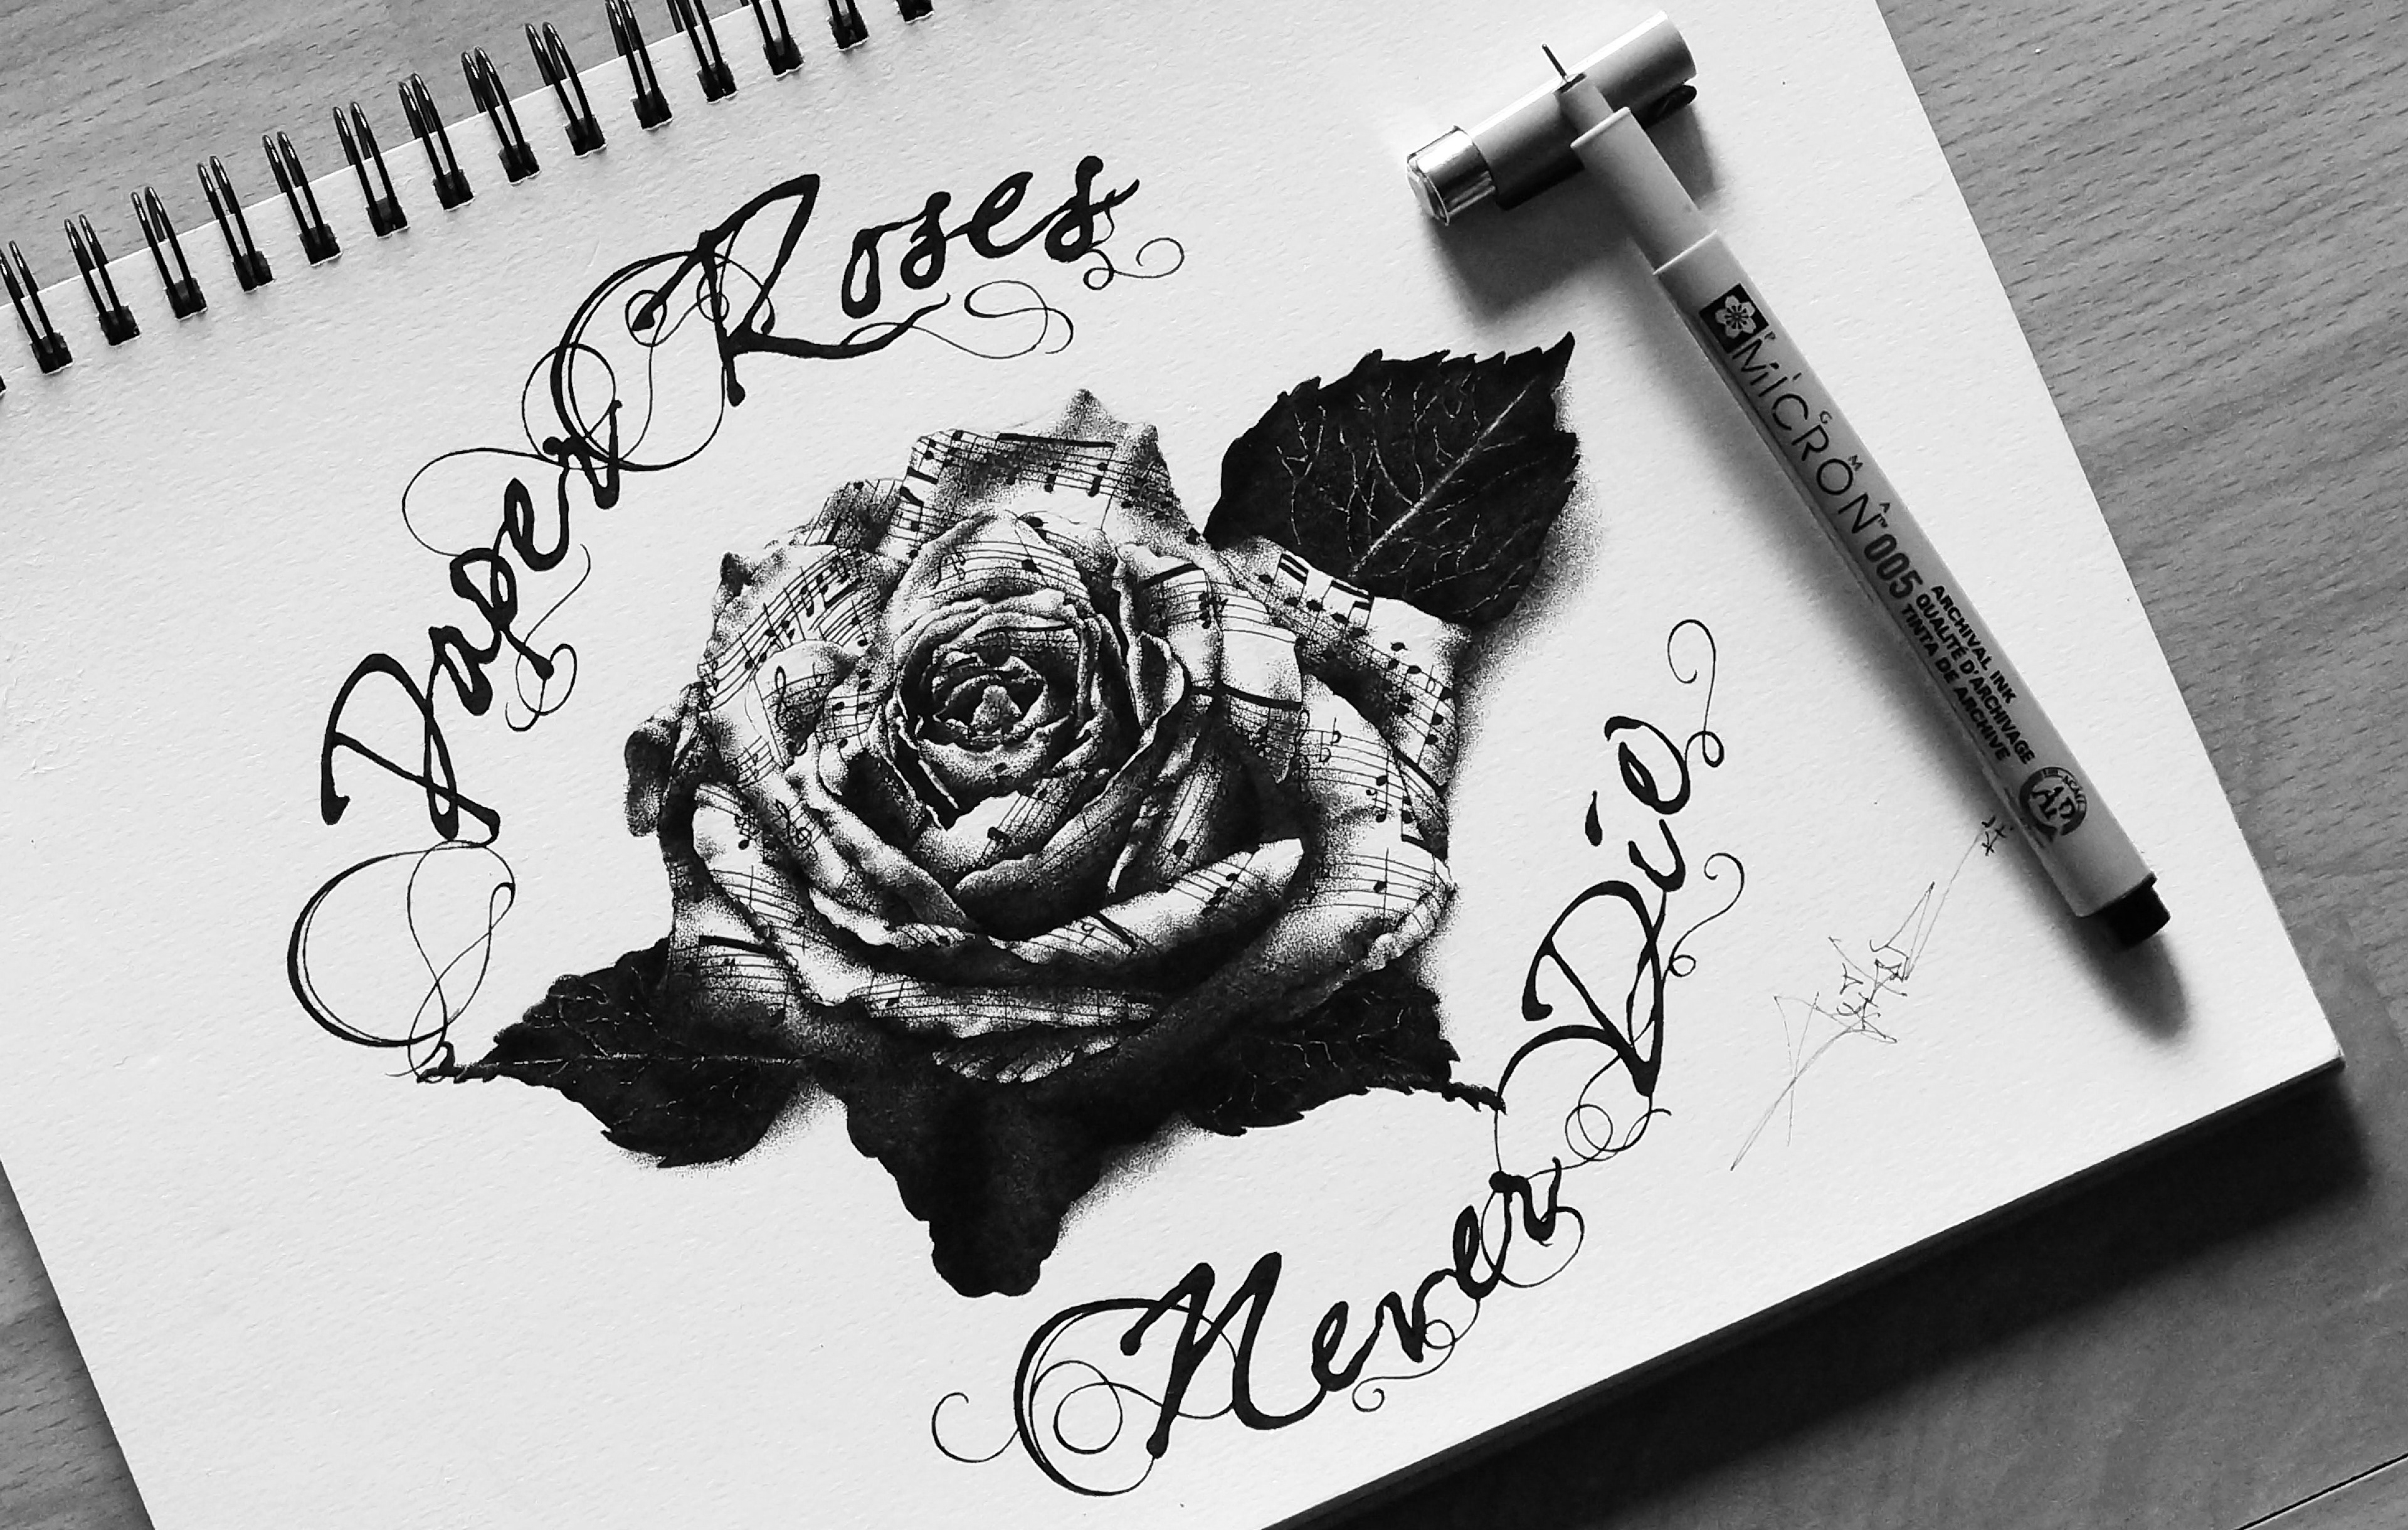 Paper Roses
Never Die
PIGMA
MICRON™ 005
ARCHIVAL INK
QUALITÉ D'ARCHIVAGE
TINTA DE ARCHIVE
AP